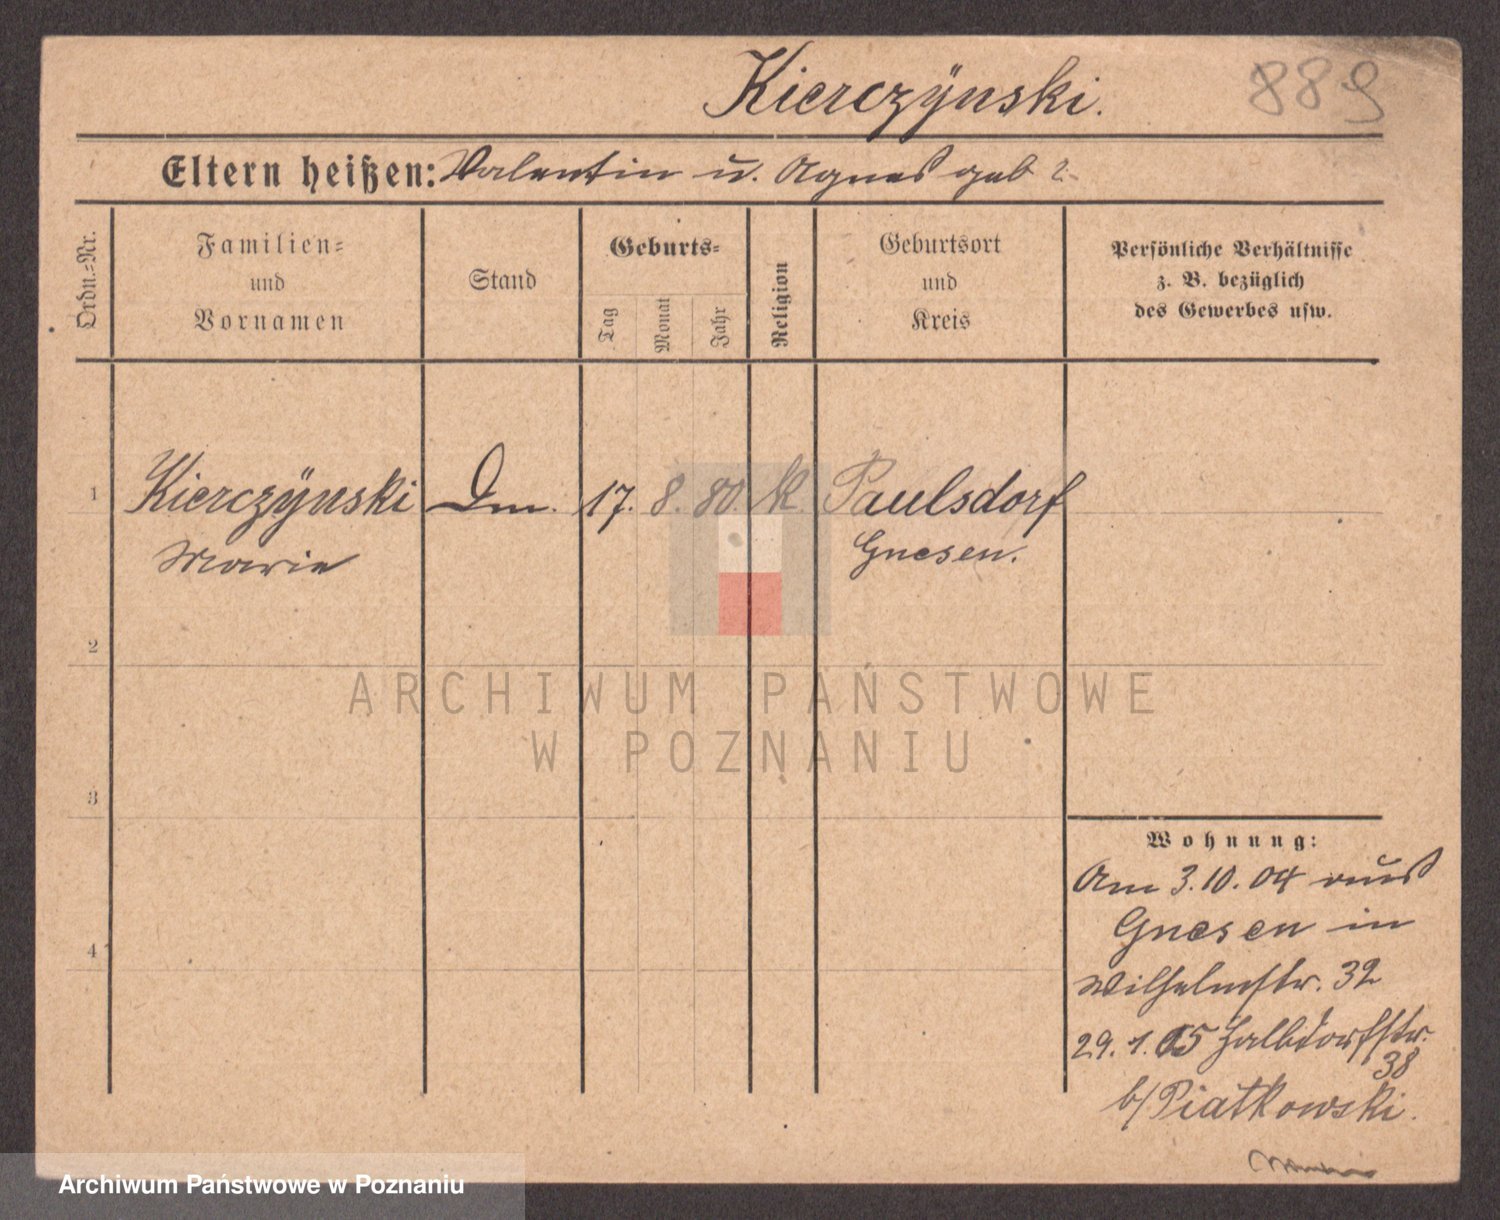 Kierczÿnski.
889
Eltern heißen: Valentin u. Agnes geb ?
Ordn.=Nr.
Familien=
und
Vornamen
Stand
Geburts=
Tag
Monat
Jahr
Religion
Geburtsort
und
Kreis
Persönliche Verhältnisse
z. B. bezüglich
des Gewerbes usw.
1 Kierczÿnski Dm. 17. 8. 80. K. Paulsdorf
Marie Gnesen.
2
3
4
ARCHIWUM PAŃSTWOWE
W POZNANIU
Wohnung:
Am 3.10.04 aus
Gnesen in
Wilhelmstr. 32
29.1.05 Halbdorfstr.
38
b/Piatkowski.
Archiwum Państwowe w Poznaniu